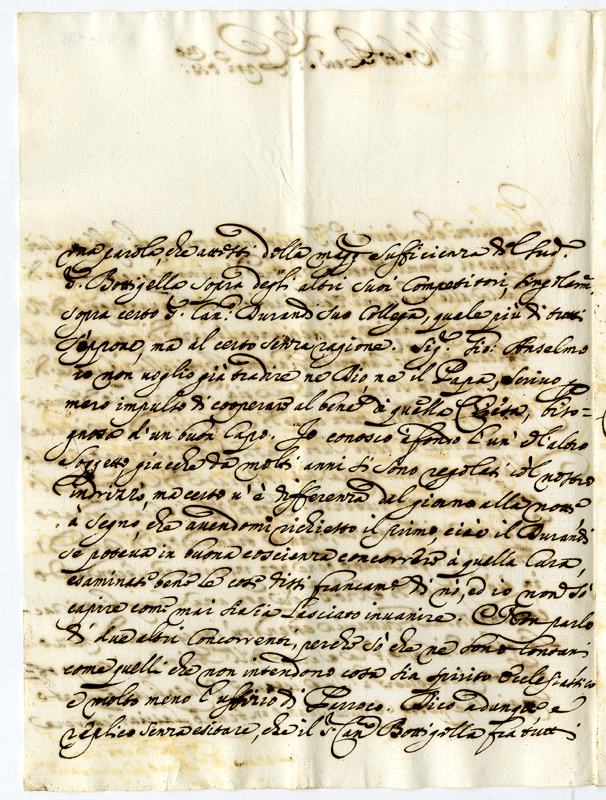 una parola, che attesti della magg. sufficienza del sud.
S. Bottigella sopra degli altri suoi Competitori, singolarm.
sopra certo S. Can. Durandi suo Collega, quale più di tutti
s'oppone, ma al certo senza ragione. Sig. Gio: Anselmo
io non voglio già tradire ne Dio ne il Papa, scrivo p
mero impulso di cooperare al bene di quella Chiesa, biso=
gnosa d'un buon Capo. Io conosco à fondo l'un' e l'altro
soggetto giacche da molti anni si sono regolati col nostro
indrizzo, ma certo v'è differenza dal giorno alla notte
à segno, che avendomi richiesto il primo, cioè il Durandi
se poteva in buona coscienza concorrere à quella Cura,
esaminate bene le cose dissi francam.e di nò, ed io non sò
capire come mai siasi lasciato invanire. Non parlo
di due altri Concorrenti, perche sò che ne sono lontani
come quelli che non intendono cosa sia spirito Ecclesiastico
e molto meno l'uffizio di Parroco. Dico adunque e
replico senza esitare, che il S. Can. Bottigella fra tutti